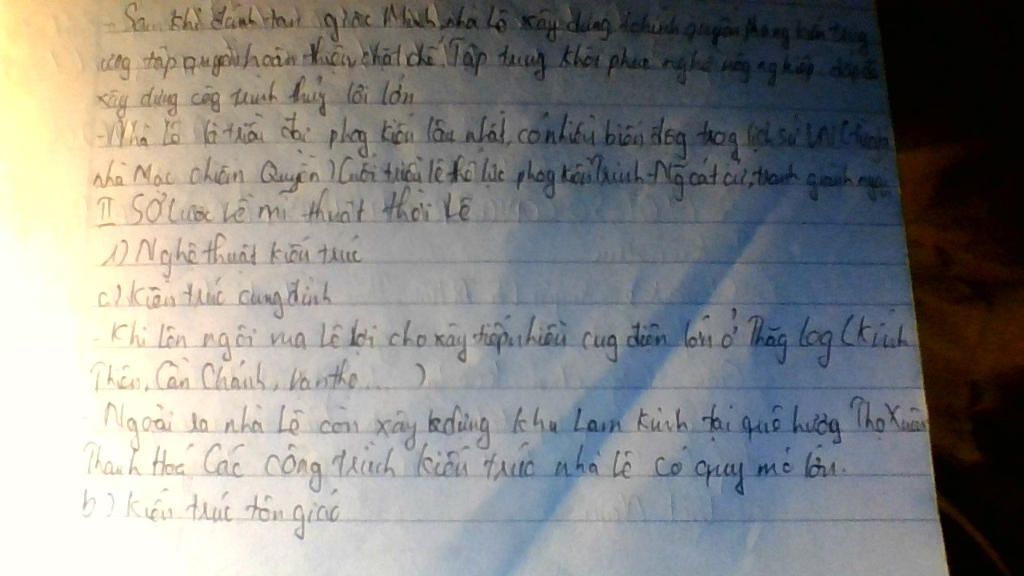 - Sau khi đánh tan giặc Minh, nhà Lê xây dựng chính quyền phong kiến trung
ương tập quyền hoàn thiện, chặt chẽ. Tập trung khôi phục nghề nông nghiệp, đắp đê
xây dựng côg trình thuỷ lôi lớn
- Nhà Lê là triều đại phog kiến lâu nhất, có nhiều biến độg trog lịch sử VN
nhà Mạc chiến Quyền) Cuối triều lê thế lực phog kiến Trịnh - Ng cát cứ, tranh giành
II Sơ lược về mĩ thuật thời Lê
1) Nghệ thuật kiến trúc
c) Kiến trúc cung đình
- Khi lên ngôi vua Lê Lợi cho xây tiếp nhiều cug điện lớn ở Thăg Log (Kính
Thiên, Cần Chánh, Vạn thọ ... )
- Ngoài ra nhà Lê còn xây dựng khu Lam Kinh tại quê hương Thọ Xuân
Thanh Hoá Các công trình kiến trúc nhà lê có quy mô lớn.
b) Kiến trúc tôn giáo